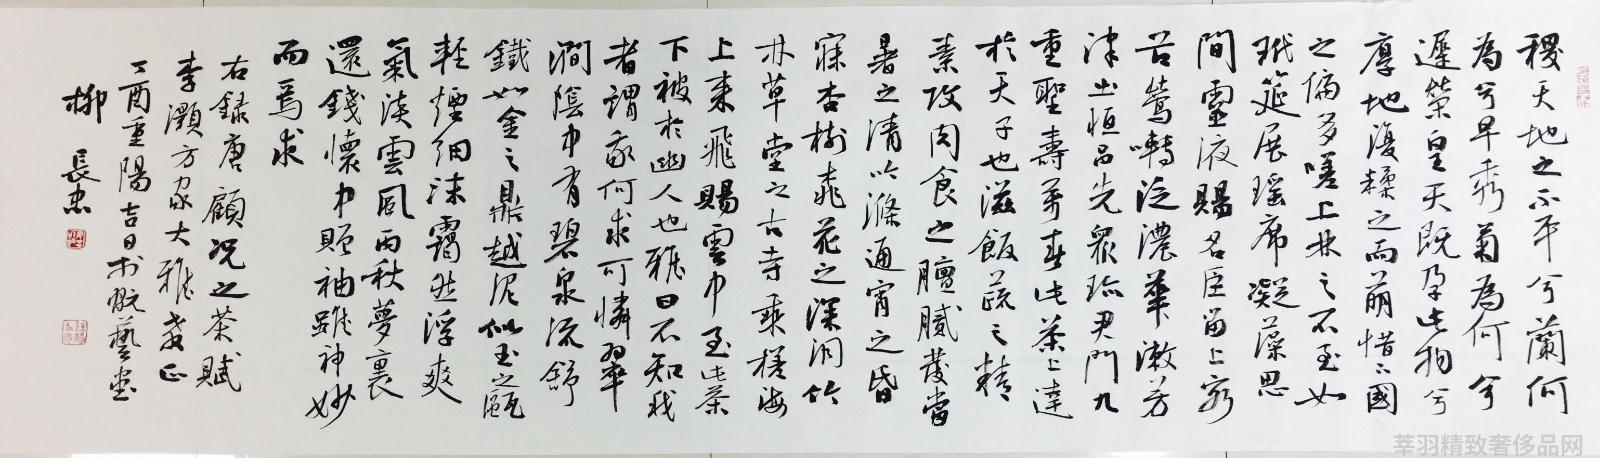 稷天地之不平兮蘭何
為兮早秀菊為何兮
遲榮皇天既孕此物兮
厚地復糅之而萌惜下國
之偏多嗟上林之不至如
玳筵展瑶席凝藻思
間靈液賜名臣留上客
谷鶯囀泛濃華漱芳
津出恒品先衆珍君門九
重聖壽萬春此茶上達
於天子也滋飯蔬之精
素攻肉食之膻膩發當
暑之清吟滌通宵之昏
寐杏樹桃花之深洞竹
林草堂之古寺乘槎海
上来飛賜雲中至此茶
下被於幽人也雅曰不知我
者謂我何求可憐翠
澗陰中有碧泉流舒
鐵如金之鼎越泥似玉之甌
輕煙細沫靄然浮爽
氣淡雲風雨秋夢裏
還錢懷中贈袖雖神妙
而焉求
右録唐顧況之茶賦
李灝方家大雅教正
丁酉重陽吉日於皖藝堂
柳長忠
莘羽精致奢侈品网